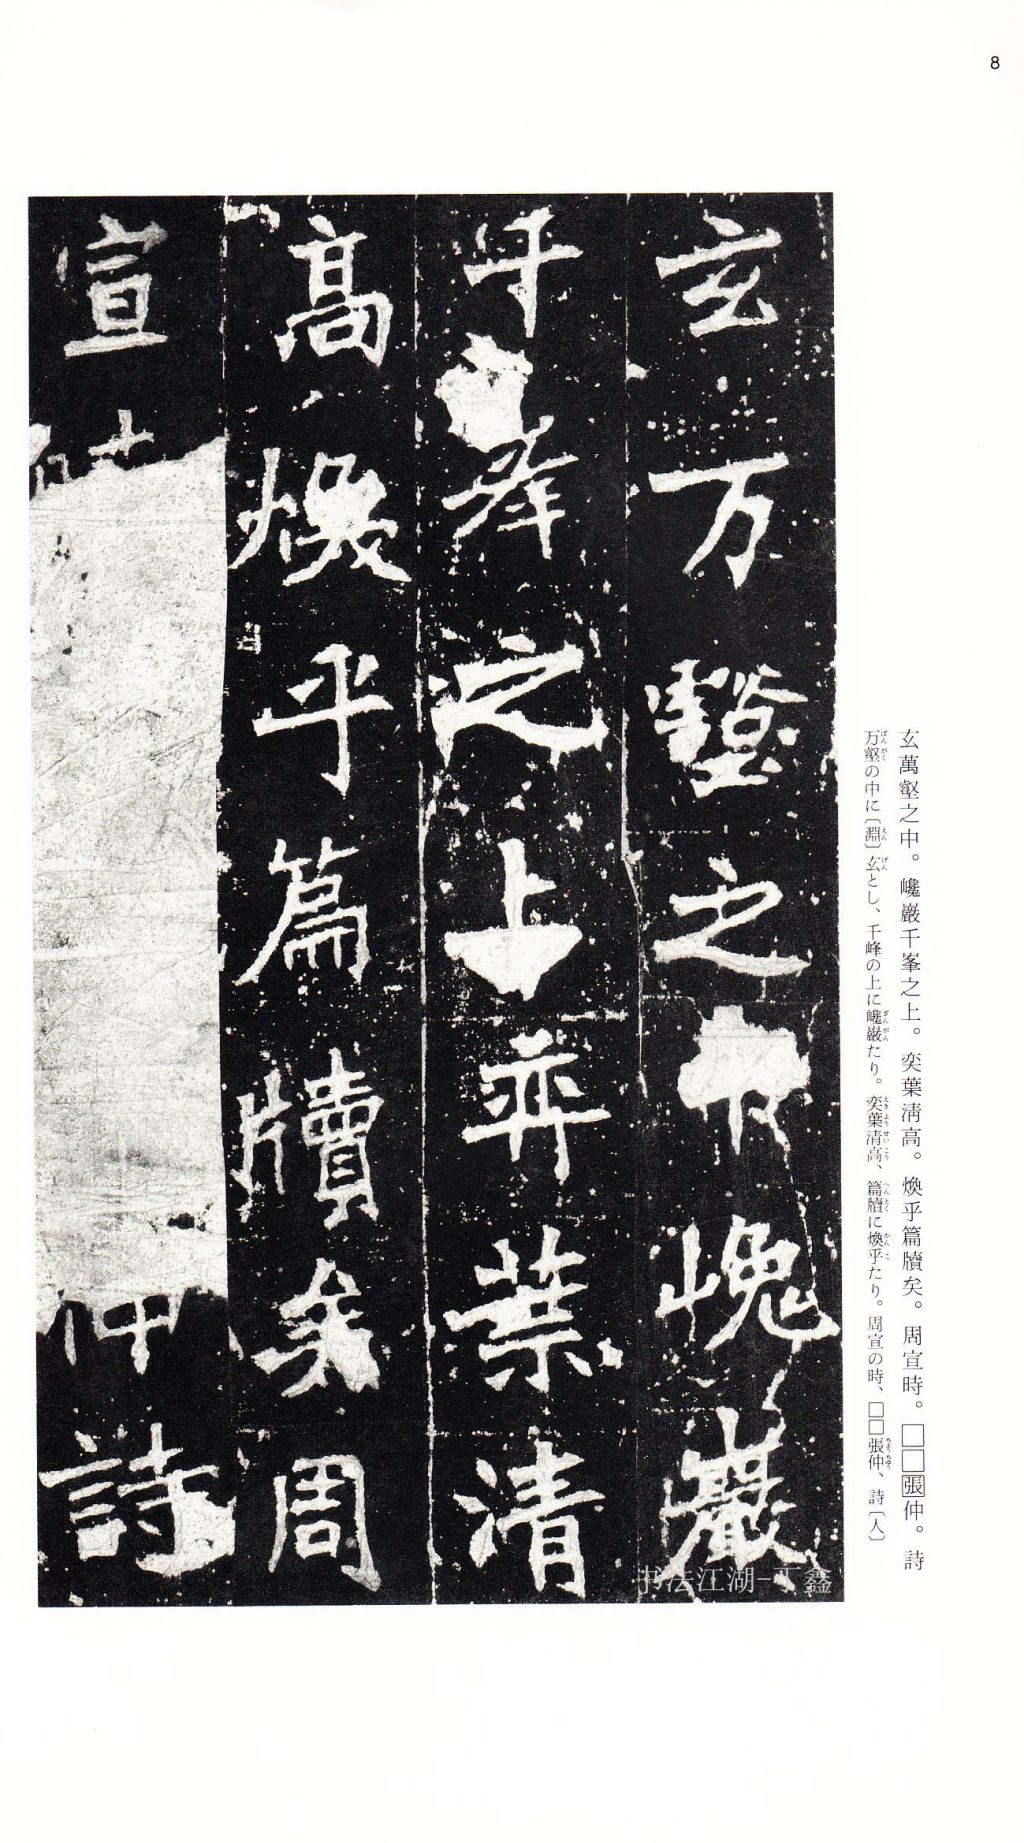 8
玄万壑之中巉巖
千峯之上弈葉清
高煥乎篇牘矣周
宣時
仲詩
玄萬壑之中。巉巖千峯之上。奕葉清高。煥乎篇牘矣。周宣時。□□張仲。詩
万壑の中に〔淵〕玄とし、千峰の上に巉巌たり。奕葉清高、篇牘に煥乎たり。周宣の時、□□張仲、詩〔人〕
书法江湖-丁鑫